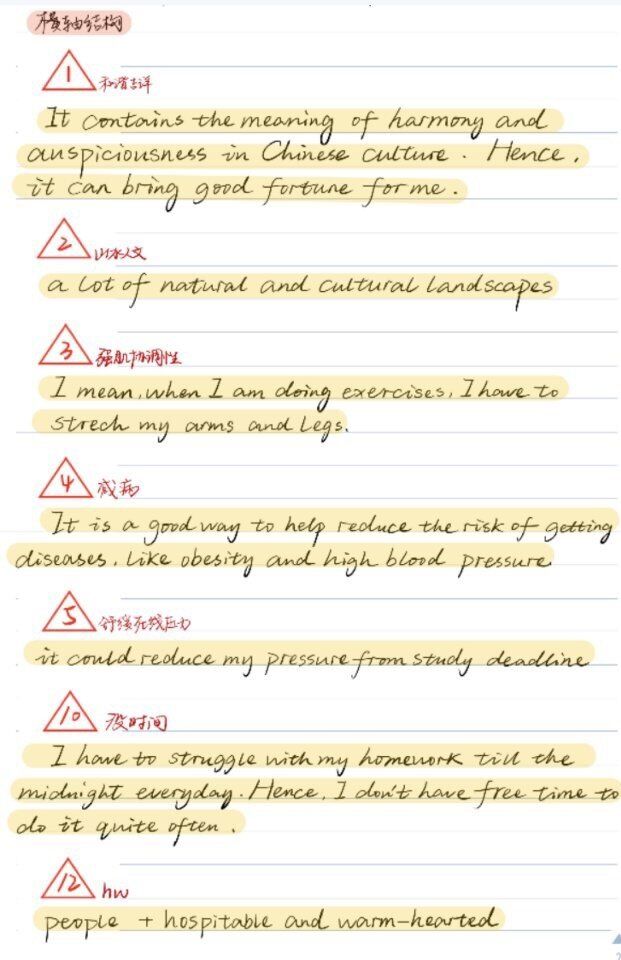 横轴结构
1 和谐吉祥
It contains the meaning of harmony and
auspiciousness in Chinese culture. Hence,
it can bring good fortune for me.
2 山水人文
a lot of natural and cultural landscapes
3 强肌协调性
I mean, when I am doing exercises, I have to
strech my arms and legs.
4 减病
It is a good way to help reduce the risk of getting
diseases. Like obesity and high blood pressure
5 舒缓死线压力
it could reduce my pressure from study deadline
10 没时间
I have to struggle with my homework till the
midnight everyday. Hence, I don't have free time to
do it quite often.
12 hw
people + hospitable and warm-hearted
2